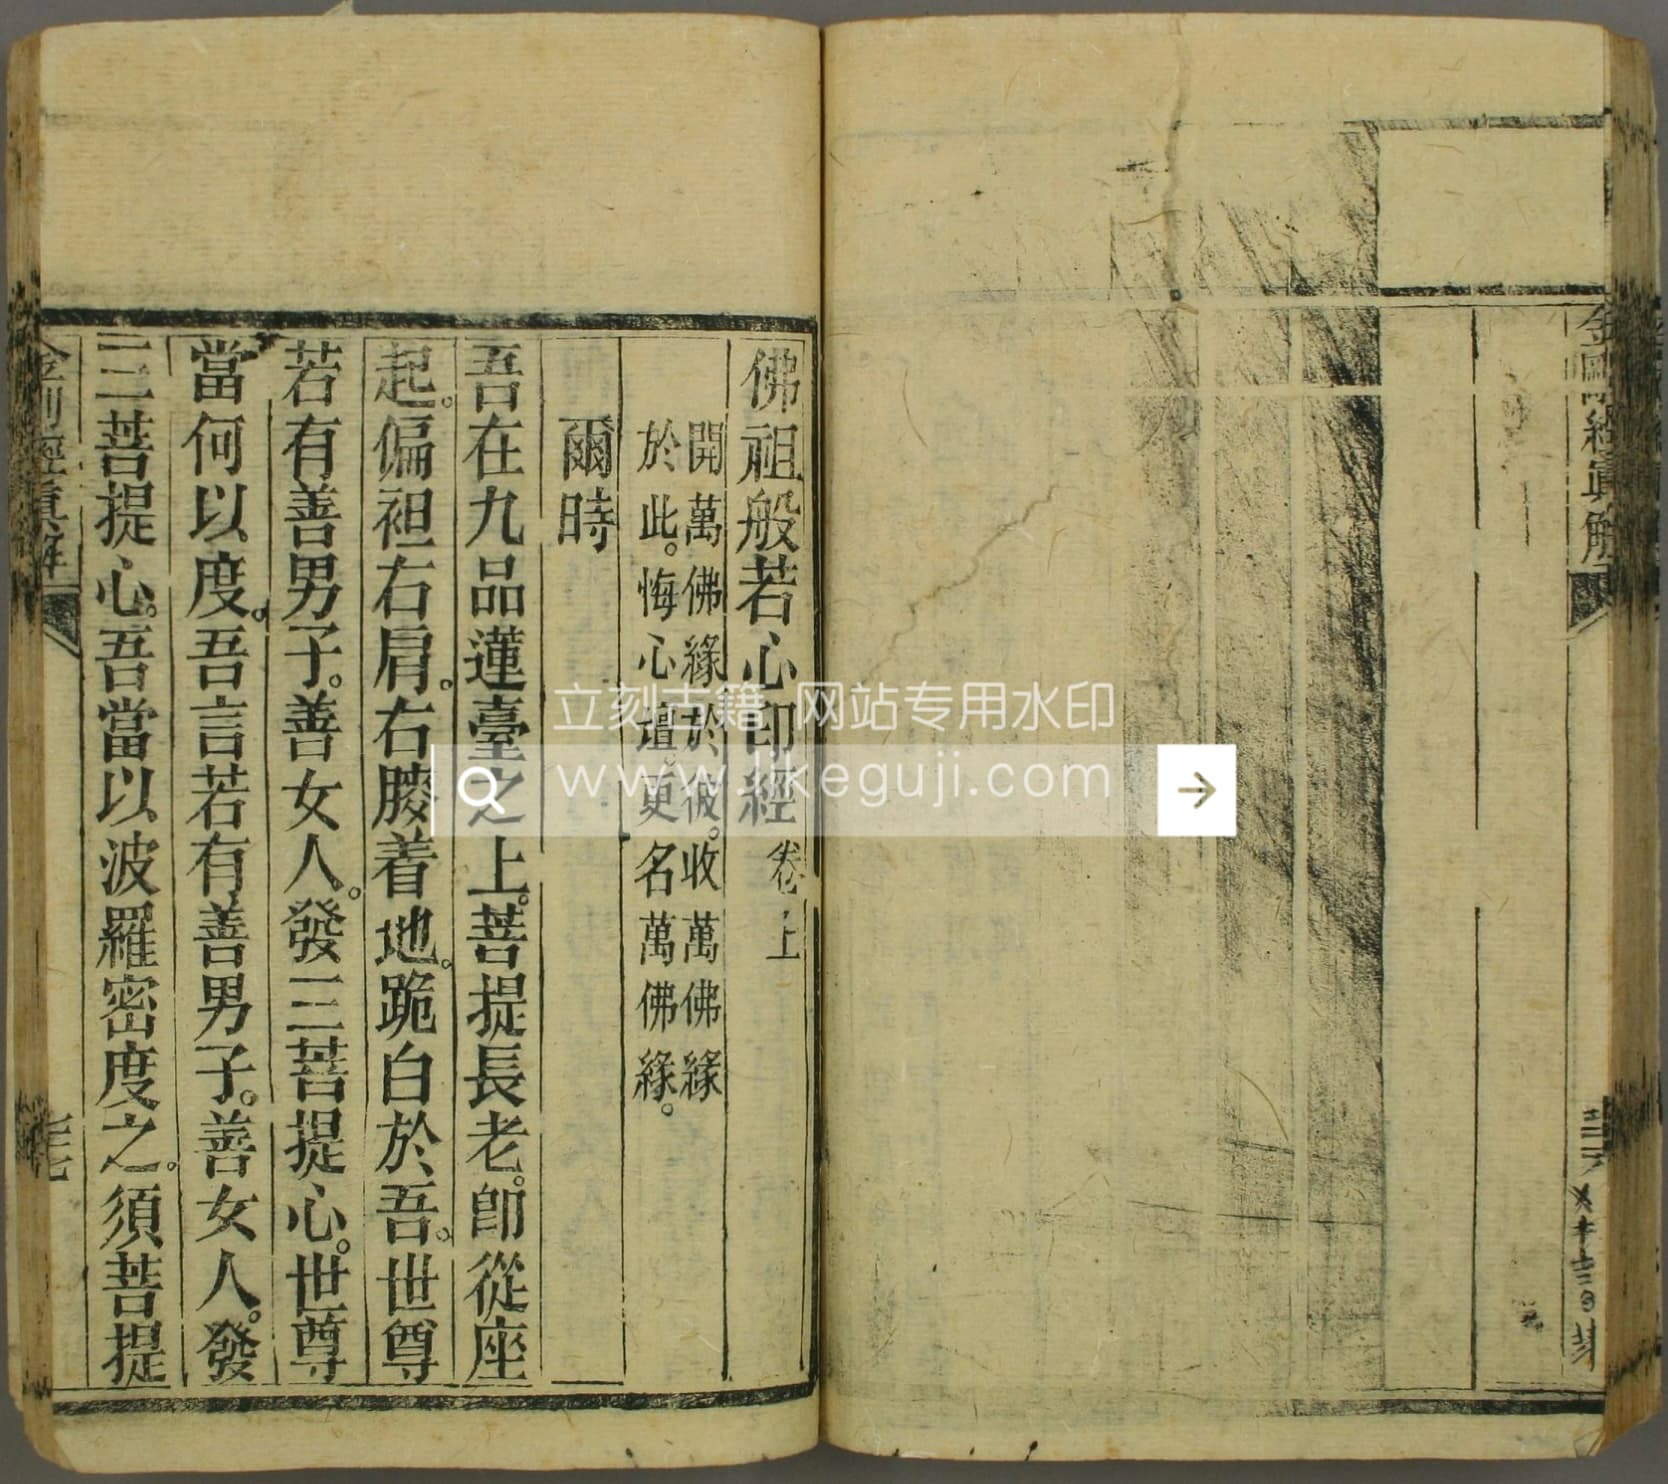 金剛經眞解
佛祖般若心印經卷上
開萬佛緣於彼。收萬佛緣
於此。悔心壇。更名萬佛緣。
爾時
吾在九品蓮臺之上。菩提長老。卽從座
起。偏袒右肩。右膝着地。跪白於吾。世尊
若有善男子。善女人。發三菩提心。世尊
當何以度。吾言若有善男子。善女人。發
三菩提心。吾當以波羅密度之。須菩提
金剛經眞解
立刻古籍 网站专用水印
www.likeguji.com